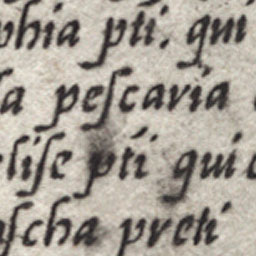 phia pti. qui
sa pescaria
elise pti qui
ascha preti